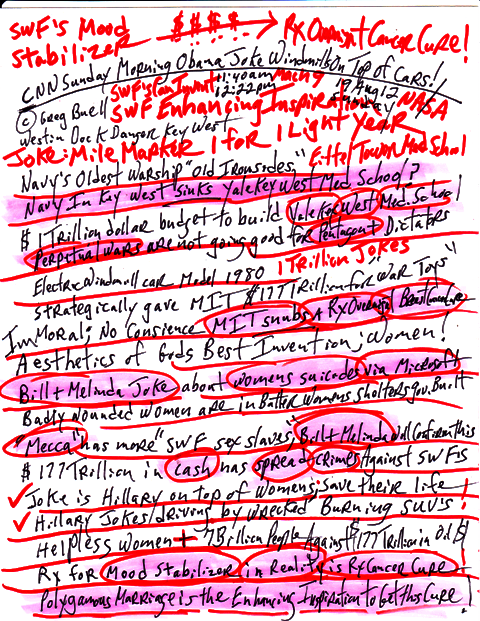 SWF's Mood
Stabilizer $$$$ Rx Overnight Cancer Cure!
CNN Sunday Morning Obama Joke Windmills On Top of Cars!
11:40am Mach 9
12:22pm 19 Aug 12
© Greg Buell SWF Enhancing Inspiration NASA
Westin Dock Danger Key West
Joke: Mile Marker 1 for 1 Light Year
Navy's Oldest Warship "Old Ironsides" Eiffel Tower Med School
Navy In Key West Sinks Yale Key West Med. School?
$ 1 Trillion dollar budget to build Yale Key West Med. School
Perpetual Wars are not going good for Pentagon Dictators
Electric Windmill car Model 1980 1 Trillion Jokes
Strategically gave MIT $177 Trillion for "War Toys"
ImMoral; No Consience MIT snubs + Rx Overnight Breast Cancer Cure
Aesthetics of Gods Best Invention; Women!
Bill + Melinda Joke about womens suicides via Microsoft
Badly wounded women are in Batter Womens Shelters gov. Built
"Mecca" has more "SWF sex slaves; Bill + Melinda will confirm this
$ 177 Trillion in cash has spread crimes Against SWF's
Joke is Hillary on top of Womens; save their life
Hillary Jokes/driving by wrecked "Burning SUV's!
Helpless Women + 7 Billion People Against $177 Trillion in Oil $
Rx for Mood Stabilizer in Reality is Rx Cancer Cure
Polygamous Marriage is the Enhancing Inspiration to Get this Cure!